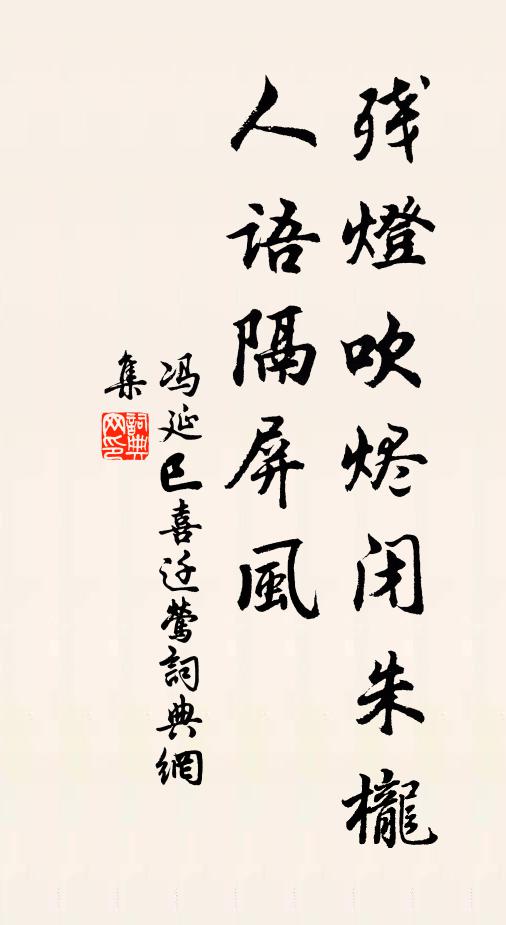 残燈吹烬闭朱櫳
人语隔屏風
冯延巳喜迁莺詞典網
集
詞典网印